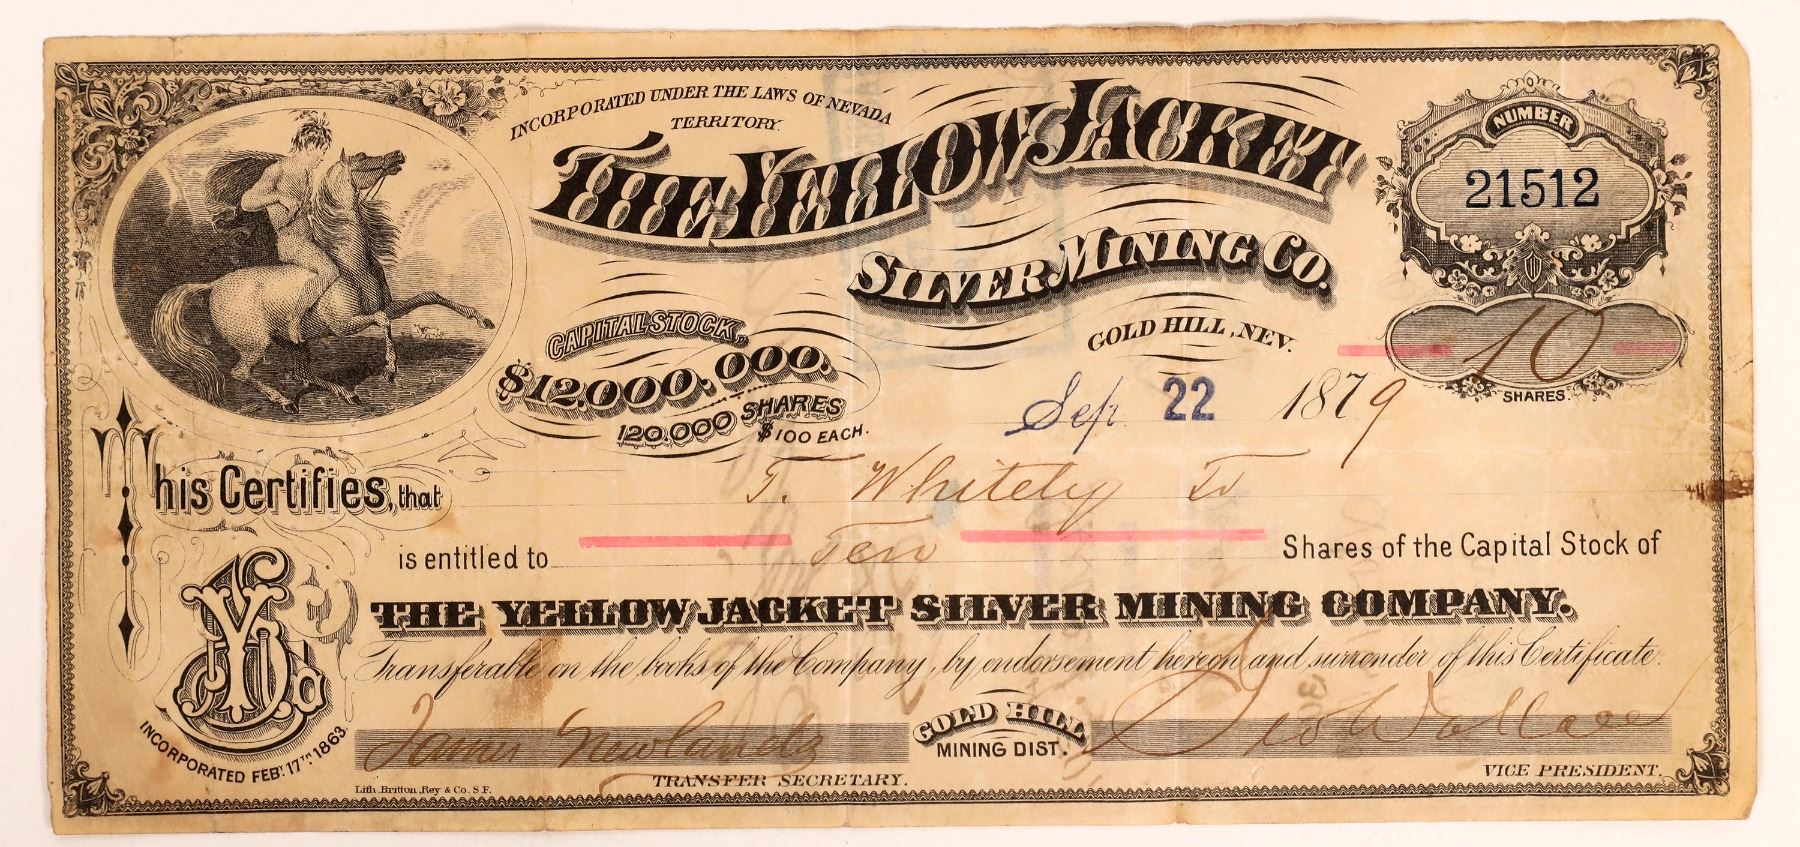 INCORPORATED UNDER THE LAWS OF NEVADA
TERRITORY.
THE YELLOW JACKET
SILVER MINING CO.
GOLD HILL, NEV.
NUMBER
21512
10
SHARES.
CAPITAL STOCK,
$12.000,000.
120.000 SHARES
$100 EACH.
Sep. 22 1879
This Certifies, that T. Whitely Tr
is entitled to Ten Shares of the Capital Stock of
THE YELLOW JACKET SILVER MINING COMPANY.
Transferable on the books of the Company, by endorsement hereon and surrender of this Certificate.
INCORPORATED FEBY. 17TH 1863.
James Newlands
TRANSFER SECRETARY.
GOLD HILL
MINING DIST.
Geo Wallace
VICE PRESIDENT.
Lith. Britton, Rey & Co. S.F.